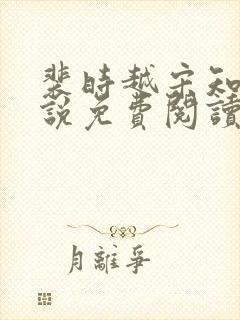 裴時越宋知
說免費閱讀
月離爭